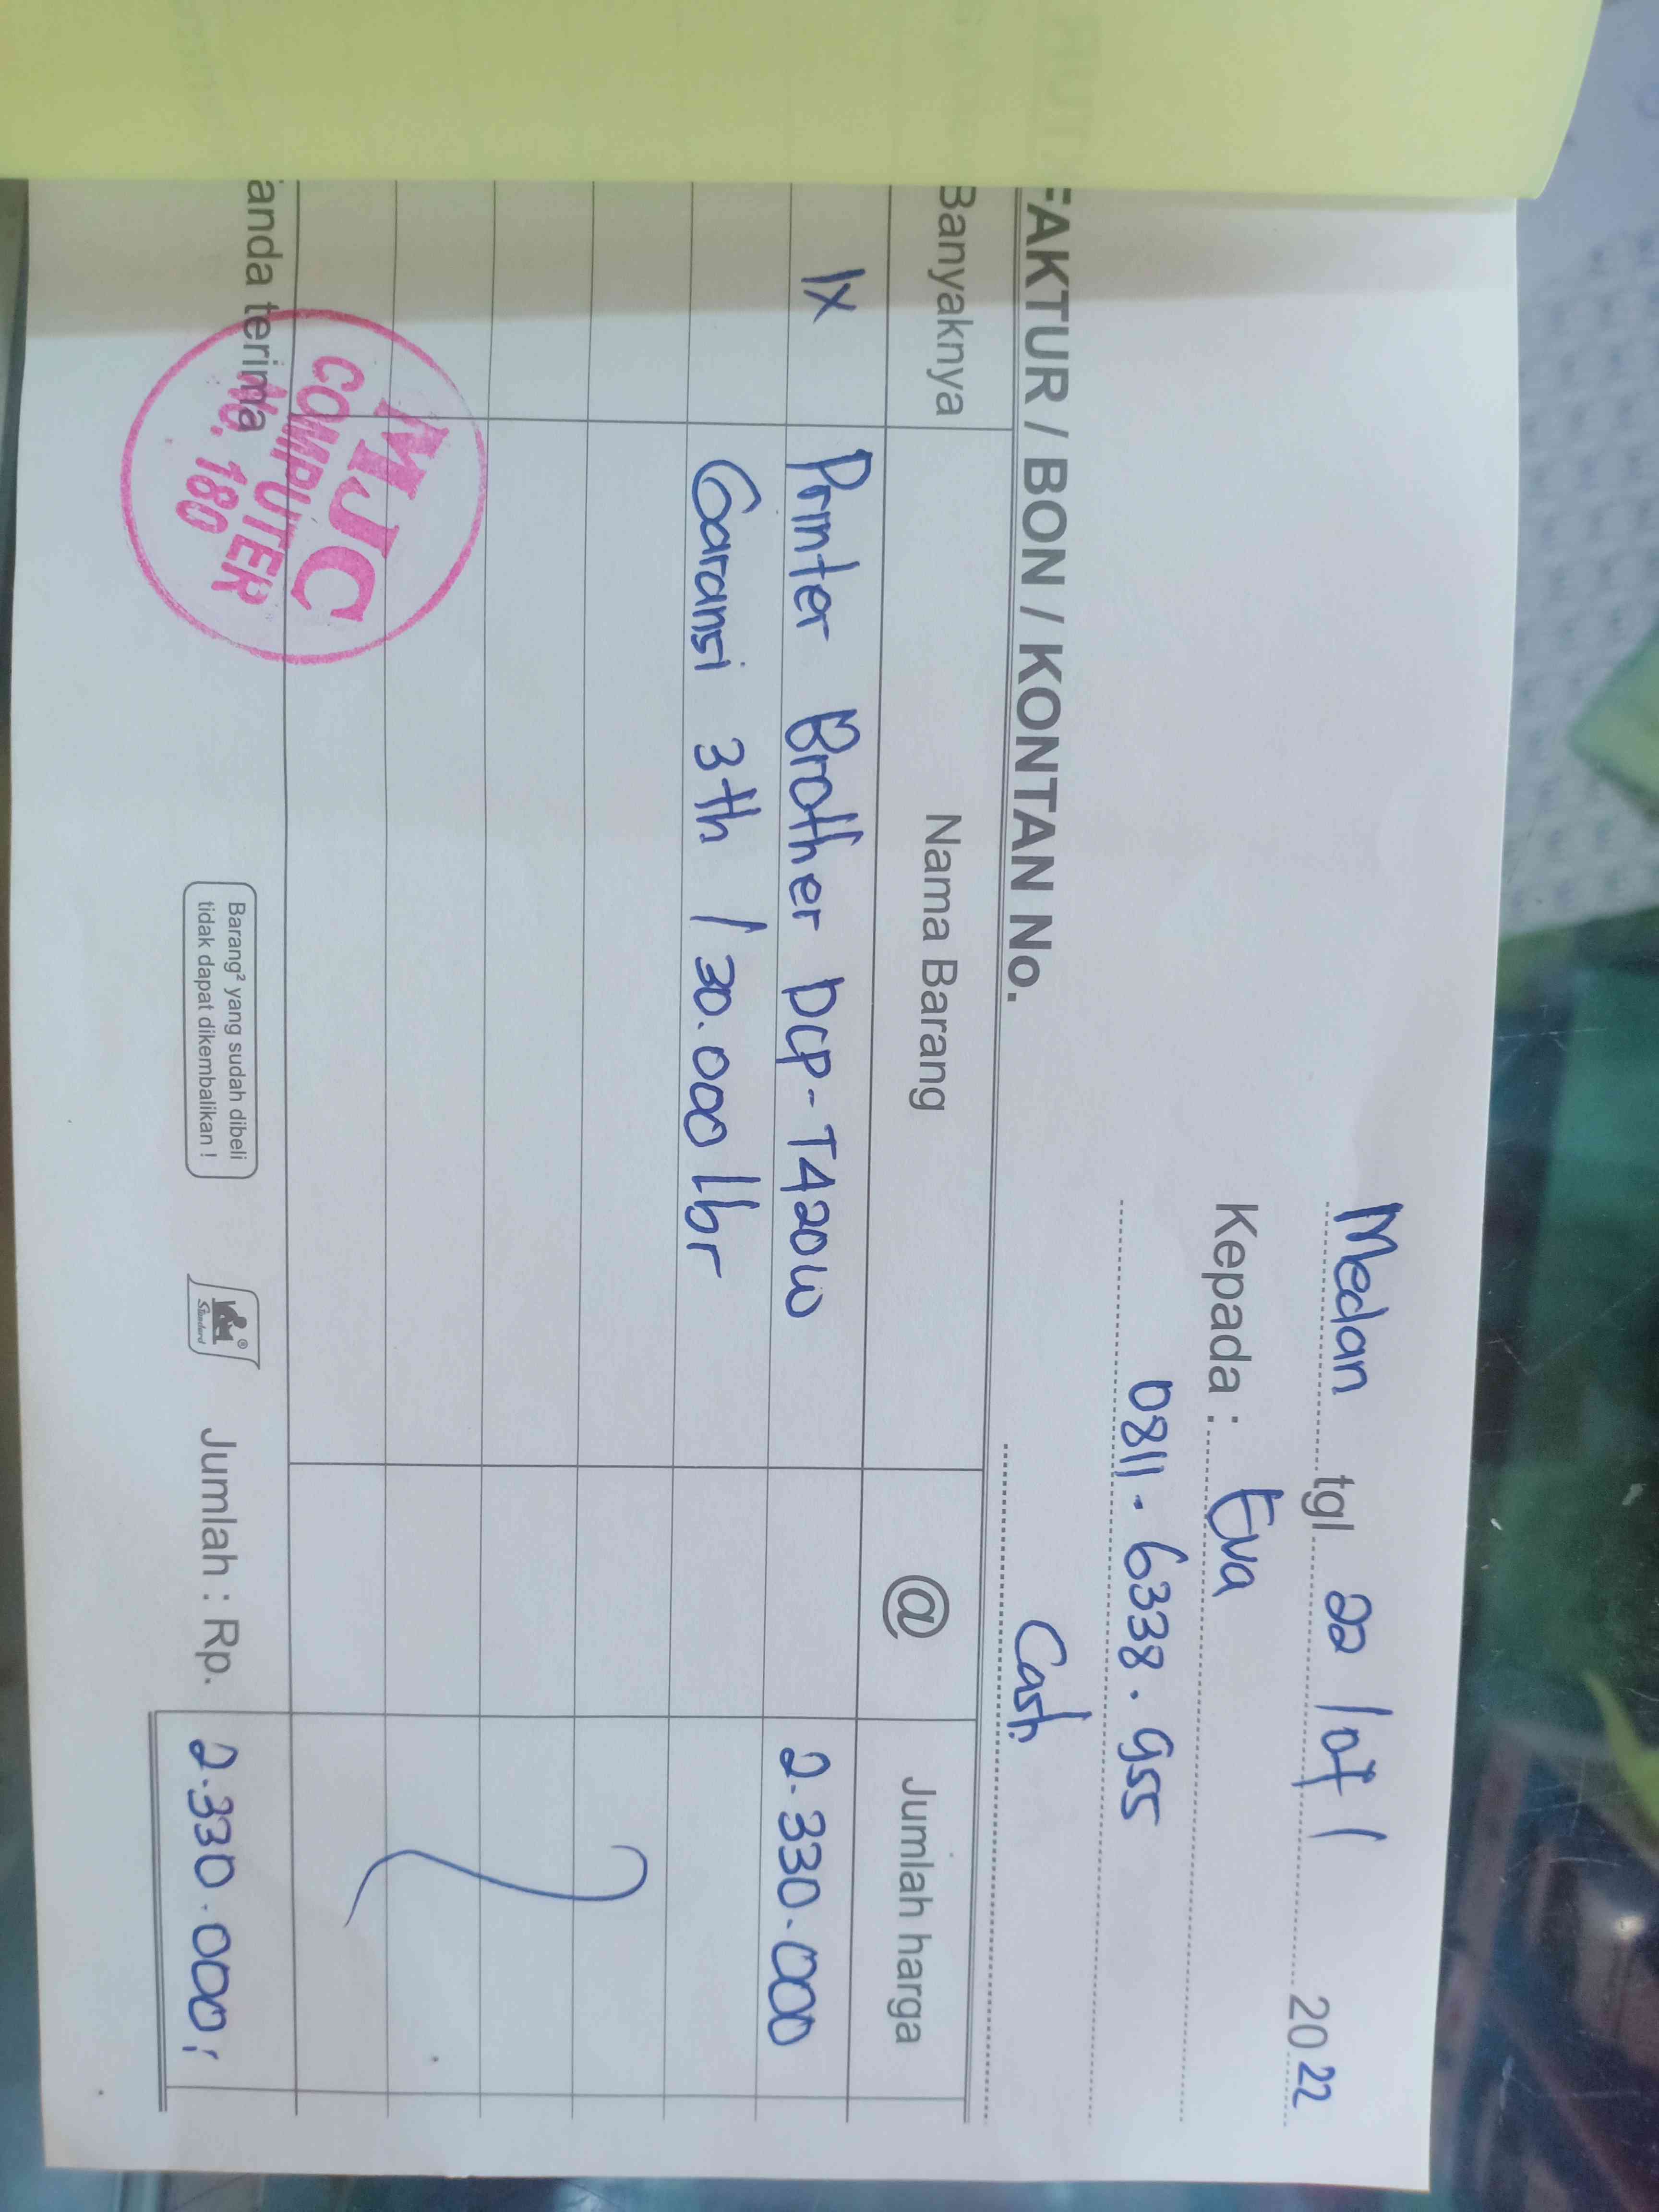 Medan tgl 22 / 07 / 2022
Kepada : Eva
0811 - 6338 . 955
FAKTUR / BON / KONTAN No. Cash
Banyaknya Nama Barang @ Jumlah harga
1x Printer Brother DCP-T420W 2.330.000
Garansi 3 th / 30.000 lbr
anda terima
MJC
COMPUTER
No. 180
Barang² yang sudah dibeli
tidak dapat dikembalikan !
Standard
Jumlah : Rp. 2.330.000,-